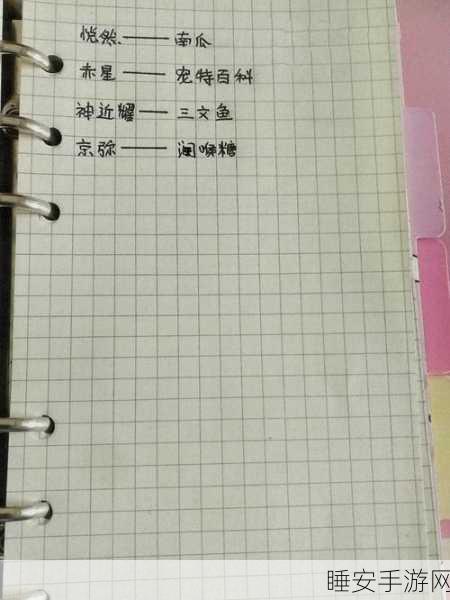 恍然——南瓜
赤星——宠特百科
神近耀——三文鱼
京弥——润喉糖
睡安手游网